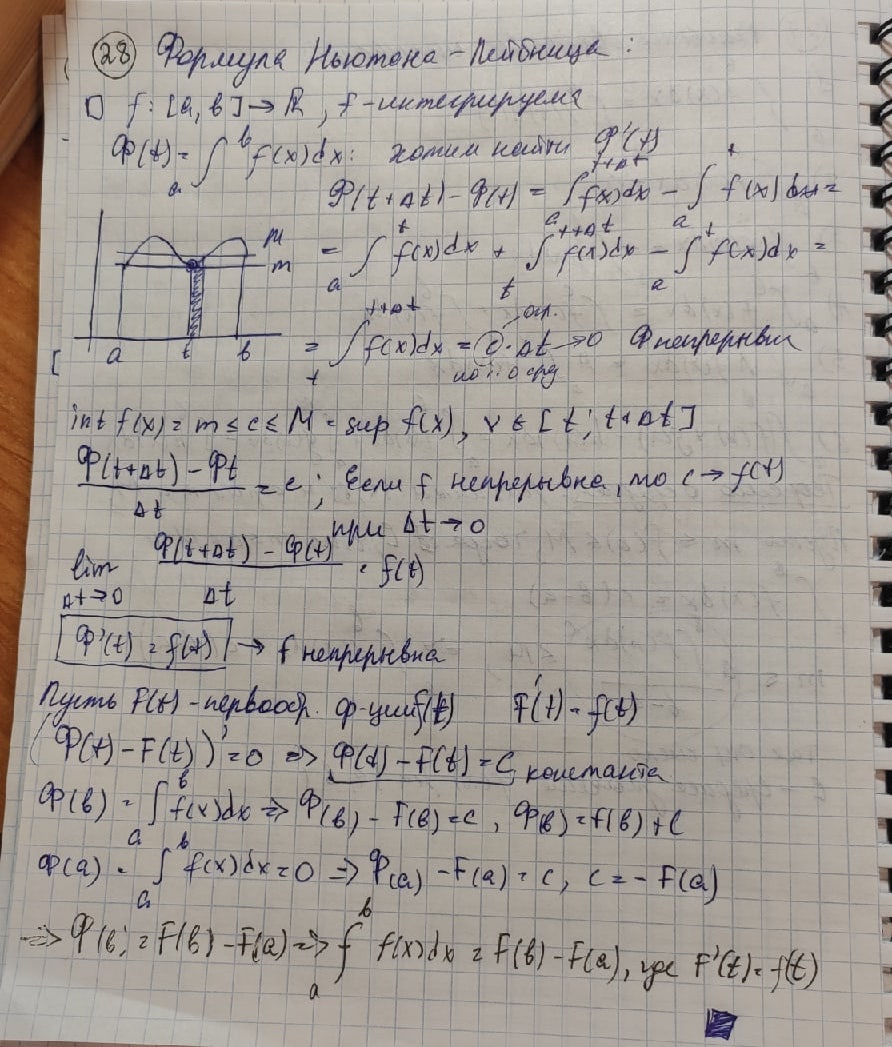 28 Формула Ньютона-Лейбница:
□ f: [a, b] → ℝ, f-интегрируема
Φ(t) = ∫ₐᵇ f(x)dx: хотим найти Φ'(t)
Φ(t+Δt) - Φ(t) = ∫ₐᵗ⁺ᐃᵗ f(x)dx - ∫ₐᵗ f(x)dx =
= ∫ₐᵗ f(x)dx + ∫ₜᵗ⁺ᐃᵗ f(x)dx - ∫ₐᵗ f(x)dx =
M
m
a t b
огр.
= ∫ₜᵗ⁺ᐃᵗ f(x)dx = c · Δt → 0 Φ непрерывн
по т. о сред
inf f(x) = m ≤ c ≤ M = sup f(x), x ∈ [t; t+Δt]
(Φ(t+Δt) - Φt) / Δt = c; Если f непрерывна, то c → f(t)
при Δt → 0
lim Δt→0 (Φ(t+Δt) - Φ(t)) / Δt = f(t)
Φ'(t) = f(t) → f непрерывна
Пусть F(t) - первообр. ф-ции f(t) F'(t) = f(t)
(Φ(t) - F(t))' = 0 => Φ(t) - F(t) = C, константа
Φ(b) = ∫ₐᵇ f(x)dx => Φ(b) - F(b) = c, Φ(b) = f(b) + C
Φ(a) = ∫ₐᵇ f(x)dx = 0 => Φ(a) - F(a) = c, c = - F(a)
=> Φ(b) = F(b) - F(a) => ∫ₐᵇ f(x)dx = F(b) - F(a), где F'(t) = f(t)